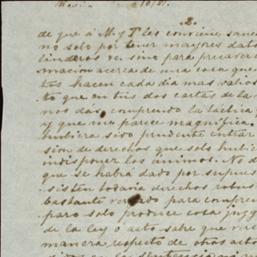 2.
de que á M. y T. les conviene
no solo por tener mayores dato
linderos &. sino para precaver
macion acerca de una cosa que
tos hacen cada dia mas valios
to que en tus dos cartas de la
nos dás, comprendo la táctica
y que me parece magnífica.
hubiera sido prudente entrar
sion de derechos que solo hubie
indisponer los ánimos. No d
que se habrá dado por supues
sisten todavia derechos
bastante para compren
paro solo produce cosa juzg
de la ley ó acto sabe que
manera respecto de otros acto